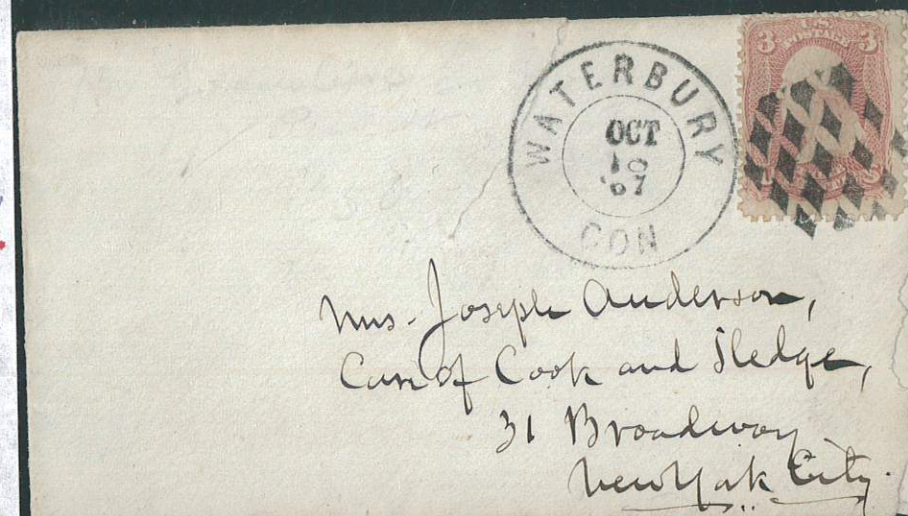 WATERBURY
OCT
18
'67
CON
U.S.
POSTAGE
3 3
Mrs. Joseph Anderson,
Care of Cook and Sledge,
31 Broadway
New York City.